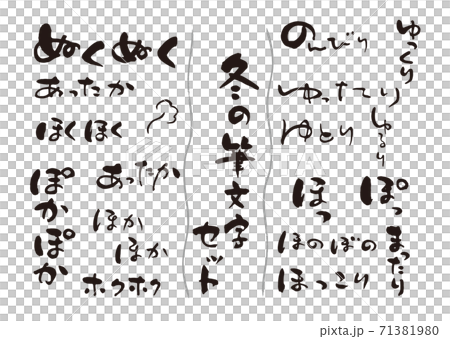 ぬくぬく
あったか
ほくほく
ぽかぽか
あったか
ほか
ほか
ホクホク
冬の筆文字
セット
のんびり
ゆっくり
ゆったり
ゆとり
ゆるり
ほっ
ぽっ
ほのぼの
ほっこり
まったり
pixta.jp - 71381980